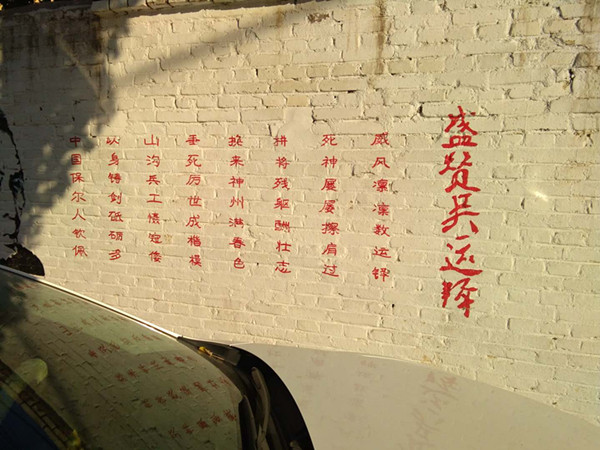 盛赞吴运铎
威风凛凛数运铎
死神屡屡擦肩过
拼将残躯酬壮志
换来神州满春色
垂死厉世成楷模
山沟兵工
以身铸剑砥砺多
中国保尔人钦佩